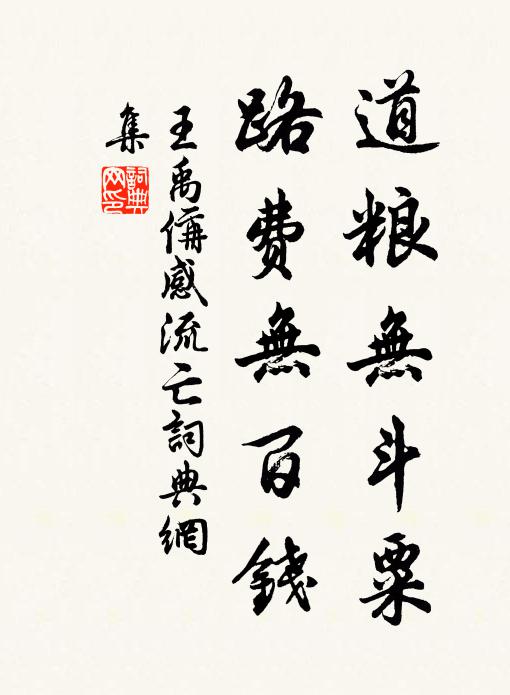 道粮無斗粟
路費無百錢
王禹偁感流亡詞典網
集
詞典
网印